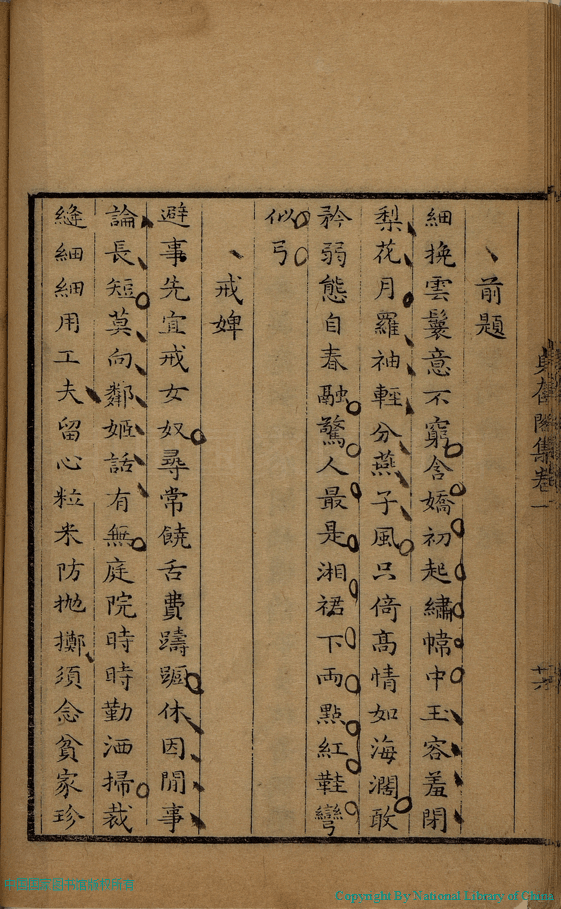 前題
細挽雲鬟意不窮含嬌初起繡幃中玉容羞閉
梨花月羅袖輕分燕子風只倚高情如海濶敢
矜弱態自春融驚人最是湘裙下兩點紅鞋彎
似弓
戒婢
避事先宜戒女奴尋常饒舌費躊躕休因閒事
論長短莫向鄰姬話有無庭院時時勤洒掃裁
縫細細用工夫留心粒米防抛擲須念貧家珍
集卷一
Copyright By National Library of China